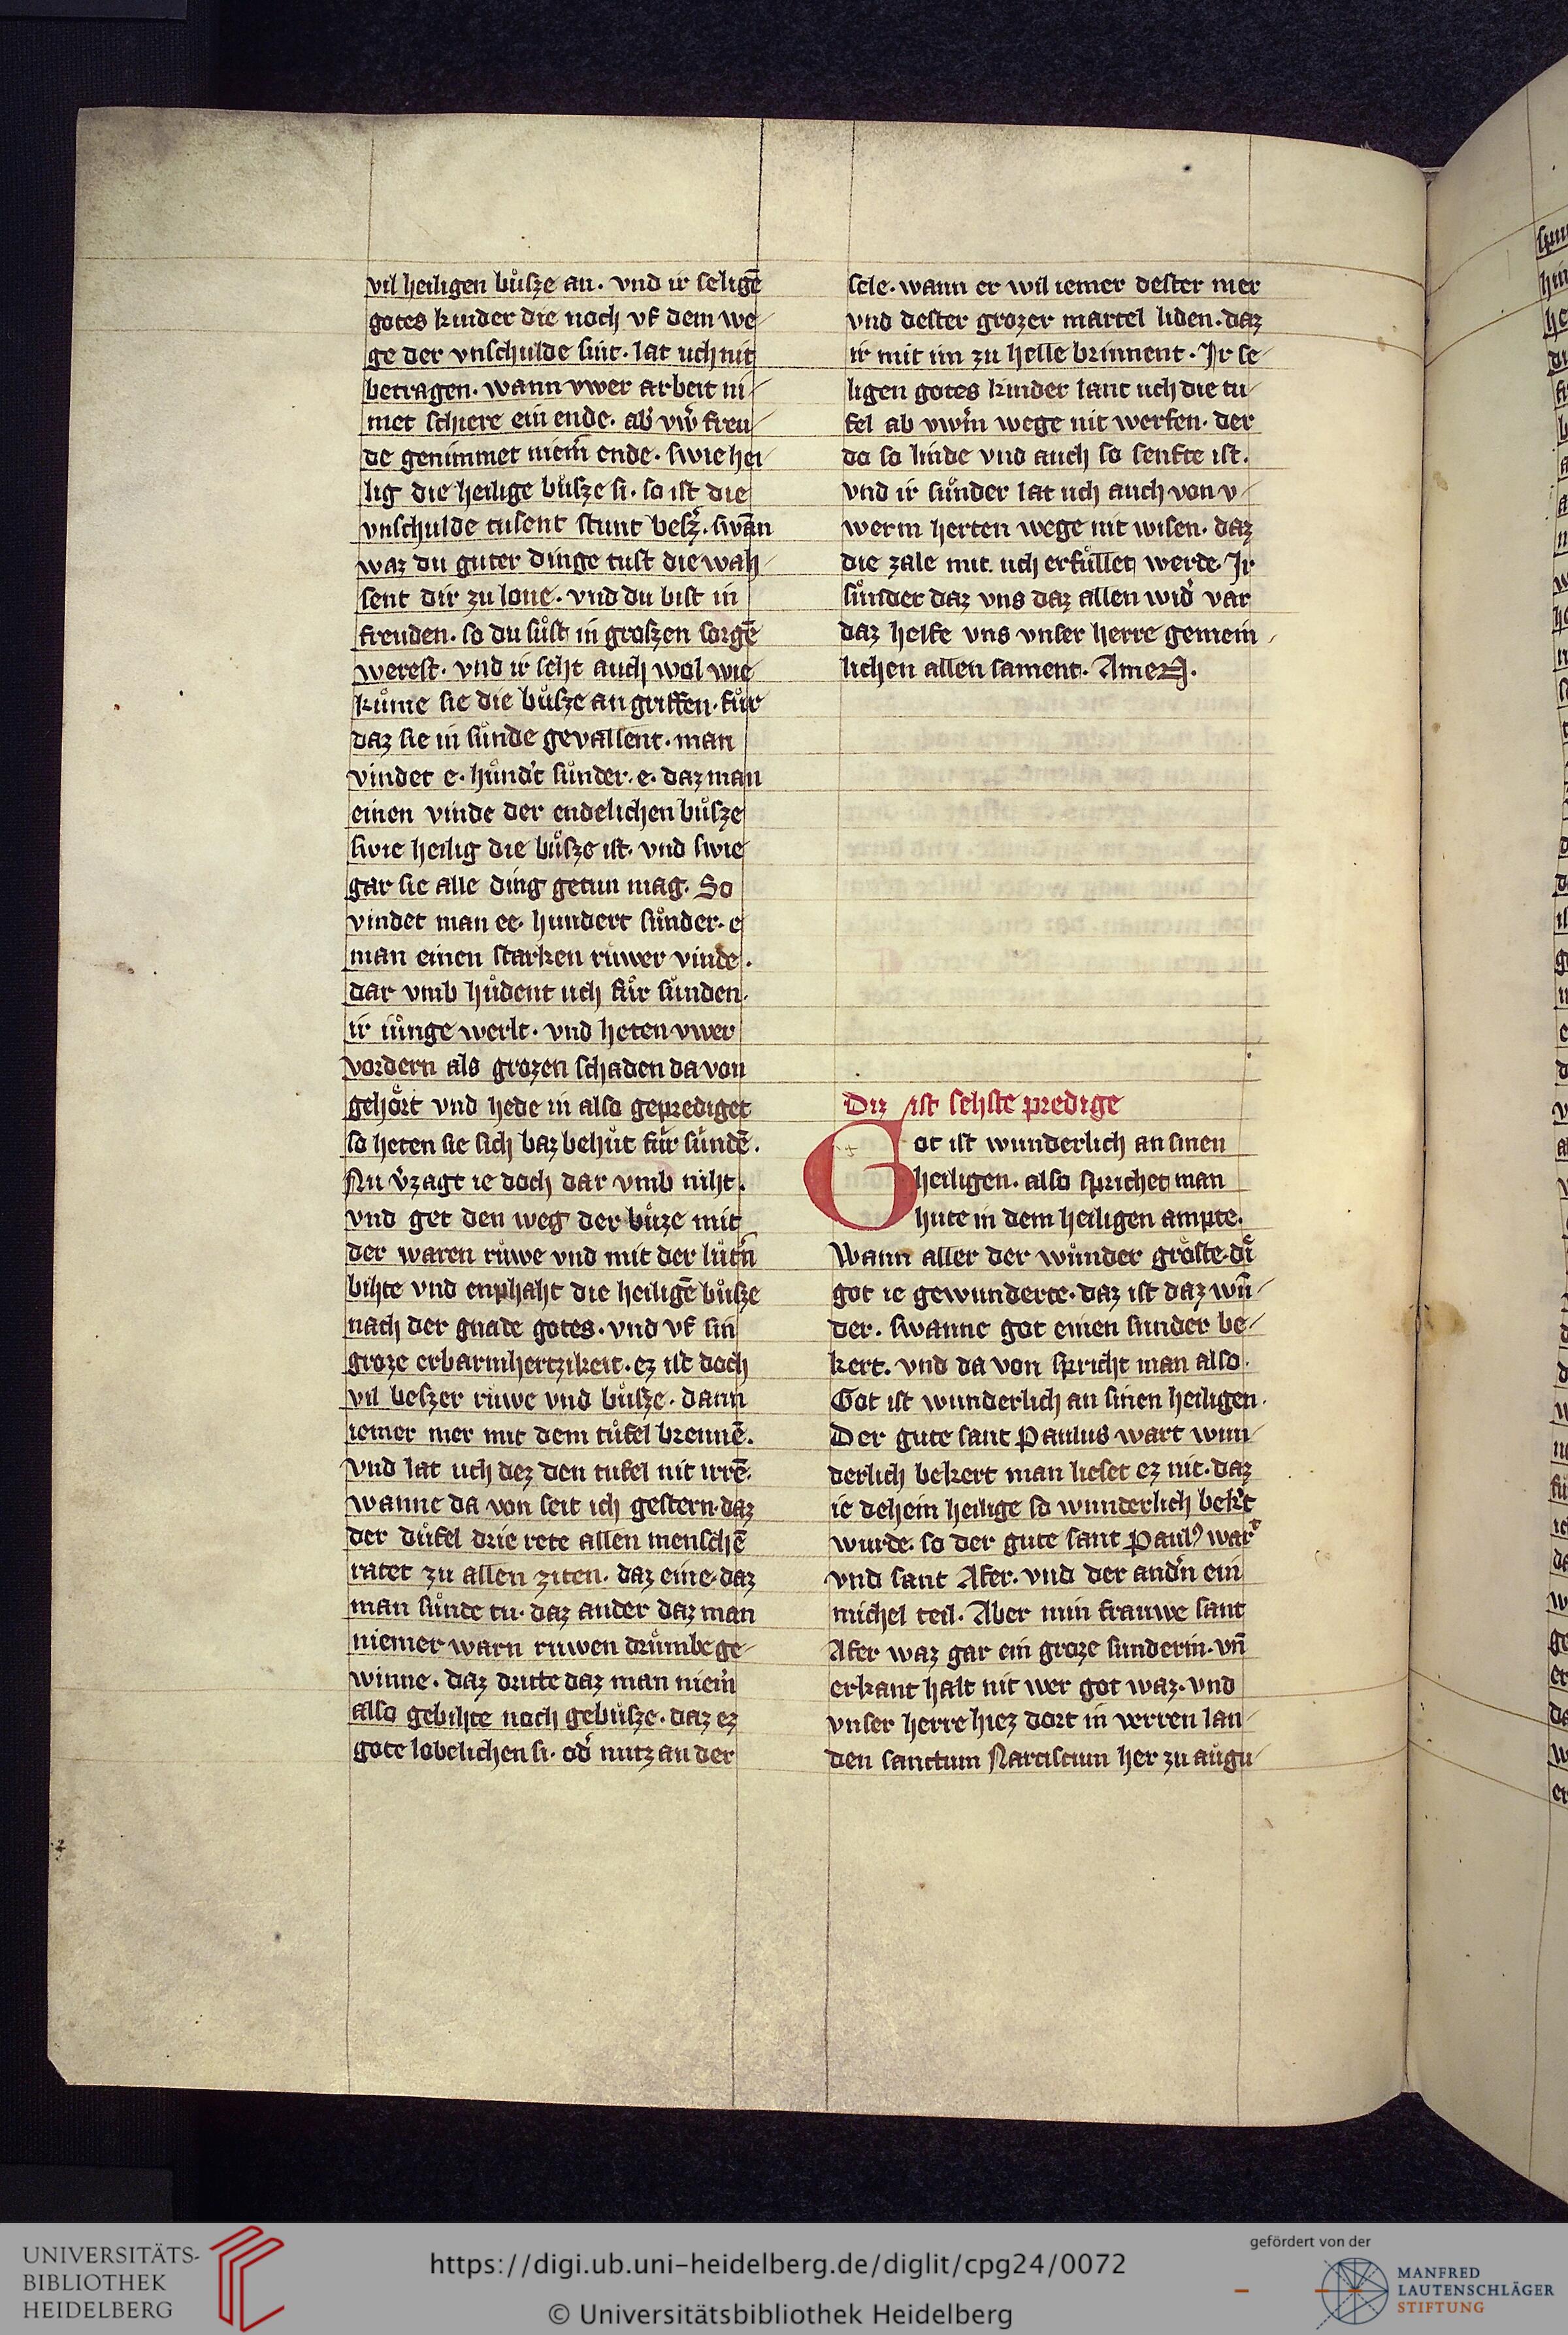 vil heiligen bůsze an. vnd ir seligē
gotes kinder die noch vf dem we-
ge der vnschulde sint. lat uch nit
betragen. wann vwer arbeit ni-
met schiere ein ende. ab' vw' freu-
de genimmet niem̄ ende. swie hei-
lig die heilige bůsze si. so ist die
vnschulde tusent stunt besz'. swān
waz du guter dinge tust die wah-
sent dir zu lone. vnd du bist in
freuden. so du sůst in groszen sorgē
werest. vnd ir seht auch wol wie
kůme sie die bůsze an griffen. fůr
daz sie in sůnde gevallent. man
vindet e. hůnd't sůnder. e. daz man
einen vinde der endelichen bůsze
swie heilig die bůsze ist. vnd swie
gar sie alle ding getun mag. So
vindet man ee. hundert sůnder. e
man einen starken růwer vinde.
dar vmb hůdent uch fůr sůnden.
ir iůnge werlt. vnd heten vwer
vordern als grozen schaden da von
gehőrt vnd hede in also geprediget
so heten sie sich baz behůt fůr sůndē.
Nu v'zagt ie doch dar vmb niht.
vnd get den weg der bůze mit
der waren růwe vnd mit der lůt'n
bihte vnd enphaht die heiligē bůsze
nach der gnade gotes. vnd vf sin
groze erbarmhertzikeit. ez ist doch
vil beszer růwe vnd bůsze. dann
iemer mer mit dem tůfel brennē.
vnd lat uch dez den tufel nit irrē.
wanne da von seit ich gestern. daz
der důfel drie rete allen menschē
ratet zu allen ziten. daz eine. daz
man sůnde tu. daz ander daz man
niemer warn ruwen drůmbe ge-
winne. daz dritte daz man niem'
also gebihte noch gebůsze. daz ez
gote lobelichen si. od' nutz an der
sele. wann er wil iemer dester mer
vnd dester grozer martel liden. daz
ir mit im zu helle brinnent. Ir se-
ligen gotes kinder lant uch die tu-
fel ab vw'm wege nit werfen. der
da so linde vnd auch so senfte ist.
vnd ir sůnder lat uch auch von v-
werm herten wege nit wisen. daz
die zale mit uch erfůllet werde. Ir
sůnder daz vns daz allen wid' var
daz helfe vns vnser herre gemein-
lichen allen sament. Amen.
Diz ist sehste predige
Got ist wunderlich an sinen
heiligen. also sprichet man
hute in dem heiligen ampte.
Wann aller der wůnder grőste. di
got ie gewunderte. daz ist daz wū-
der. swanne got einen sunder be-
kert. vnd da von spricht man also.
Got ist wunderlich an sinen heiligen.
Der gute sant Paulus wart wun-
derlich bekert man lieset ez nit. daz
ie dehein heilige so wunderlich bek't
wurde. so der gute sant Paul9 wart
vnd sant Afer. vnd der and'n ein
michel teil. Aber min frauwe sant
Afer waz gar ein groze sunderin. vn̄
erkant halt nit wer got waz. vnd
vnser herre hiez dort in verren lan-
den sanctum Narcissum her zu augu-
UNIVERSITÄTS-
BIBLIOTHEK
HEIDELBERG
https://digi.ub.uni-heidelberg.de/diglit/cpg24/0072
© Universitätsbibliothek Heidelberg
gefördert von der
MANFRED
LAUTENSCHLÄGER
STIFTUNG